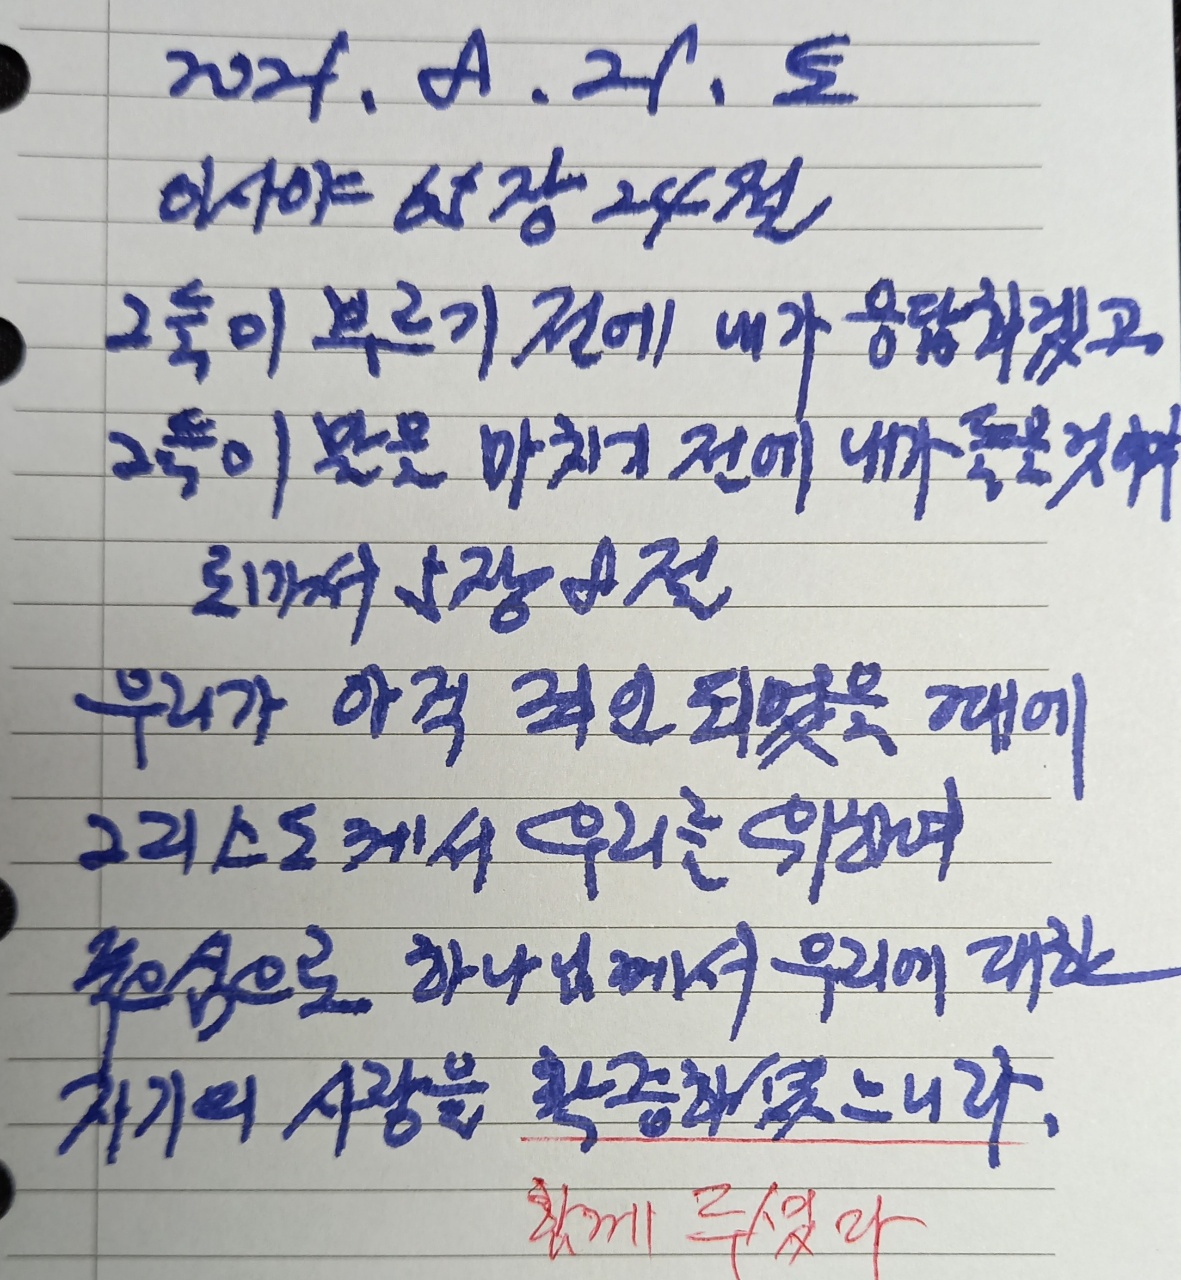 2021. 8. 21. 토
이사야 65장 24절
그들이 부르기 전에 내가 응답하겠고
그들이 말을 마치기 전에 내가 들을것이며
로마서 5장 8절
우리가 아직 죄인 되었을 때에
그리스도께서 우리를 위하여
죽으심으로 하나님께서 우리에 대한
자기의 사랑을 확증하셨느니라.
함께 두셨다